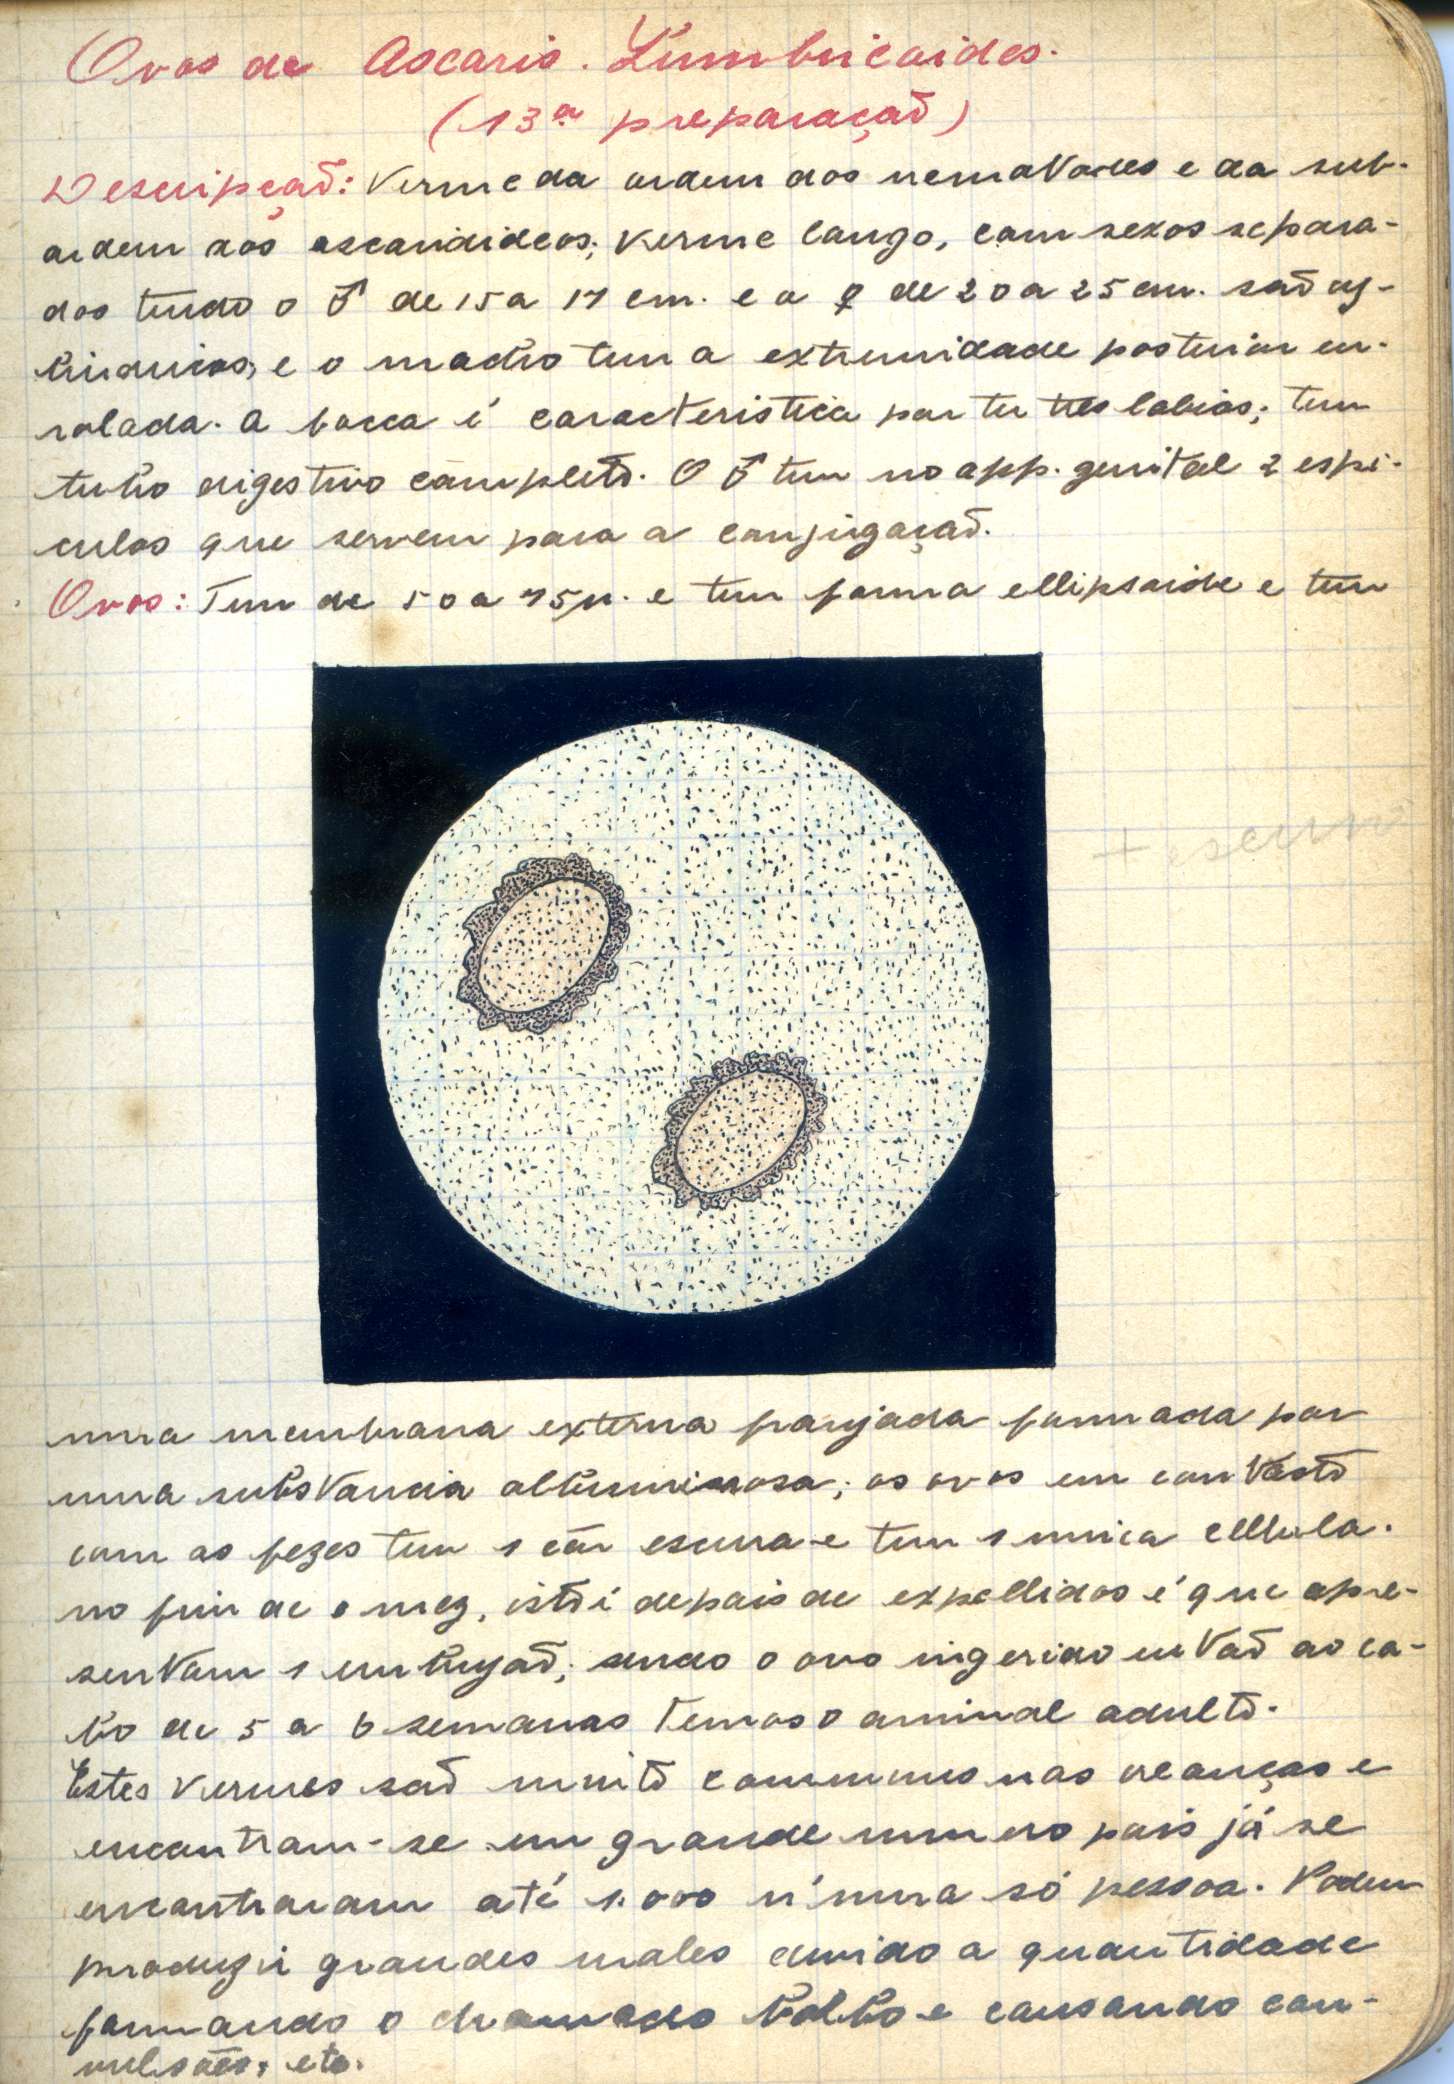 Ovos de Ascaris Lumbricoides.
(13ª preparação)
Descripção: Verme da ordem dos nematodes e da sub-
ordem dos ascaridideos; verme longo, com sexos separa-
dos tendo o ♂ de 15 a 17 cm. e a ♀ de 20 a 25 cm. são cy-
lindricos, e o macho tem a extremidade posterior en-
rolada. A bocca é caracteristica por ter tres labios; tem
tubo digestivo completo. O ♂ tem no app. genital 2 espi-
culos que servem para a conjugação.
Ovos: Tem de 50 a 75µ. e tem forma ellipsoide e tem
+ escuro
uma membrana externa franjada formada por
uma substancia albuminosa; os ovos em contacto
com as fezes tem 1 côr escura e tem 1 unica cellula.
no fim de 1 mez, isto é depois de expellidos é que apre-
sentam 1 embryão; sendo o ovo ingerido então ao ca-
bo de 5 a 6 semanas temos o animal adulto.
Estes vermes são muito communs nas creanças e
encontram-se em grande numero pois já se
encontraram até 1.000 n'uma só pessoa. Podem
produzir grandes males devido a quantidade
formando o chamado bolbo e causando con-
vulsões, etc.